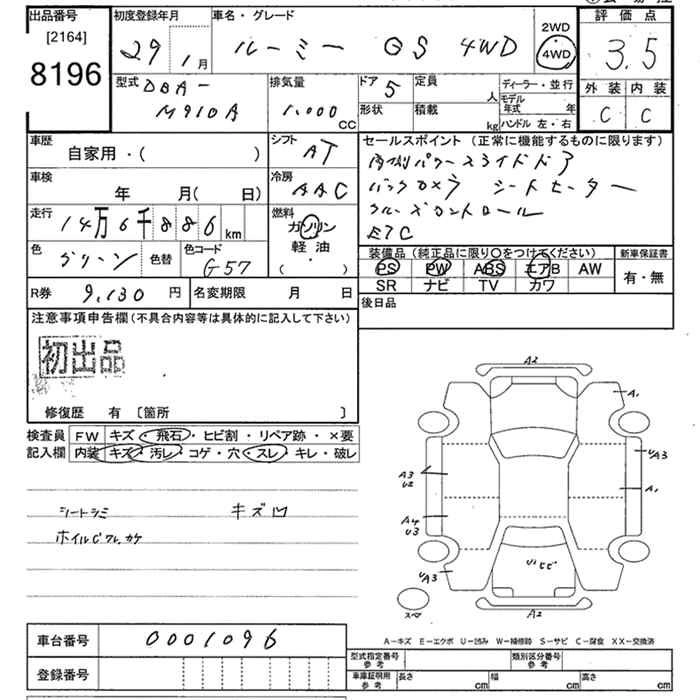 出品番号
[2164]
8196
初度登録年月
29 1月
車名・グレード
ルーミー GS 4WD
2WD
4WD
評価点
3.5
外装 内装
C C
型式 DBA-
M910A
排気量
1.000
CC
ドア 5
定員
人
形状
積載
kg
ディーラー・並行
モデル
年式 年
ハンドル 左・右
車歴
自家用・( )
シフト
AT
車検
年 月( 日)
冷房
AAC
走行
14万6千886 km
燃料
ガソリン
軽油
( )
色
グリーン
色替
色コード
G57
R券 9,130 円
名変期限 月 日
セールスポイント (正常に機能するものに限ります)
両側パワースライドドア
バックカメラ シートヒーター
クルーズコントロール
ETC
装備品 (純正品に限り○をつけてください)
PS PW ABS エアB AW
SR ナビ TV カワ
新車保証書
有・無
後日品
注意事項申告欄 (不具合内容等は具体的に記入して下さい)
初出品
修復歴 有 〔箇所 〕
検査員
記入欄
FW キズ・飛石・ヒビ割・リペア跡・×要
内装 キズ・汚レ・コゲ・穴・スレ・キレ・破レ
シートシミ キズ凹
ホイルCワレ,カケ
A2
A1
UA3
A1
A3
U2
A4
U3
UA3
スペア
A2
A-キズ E-エクボ U-凹み W-補修跡 S-サビ C-腐食 XX-交換済
車台番号 0001096
登録番号
型式指定番号
参考
類別区分番号
参考
車庫証明用
参考
長さ cm 幅 cm 高さ cm